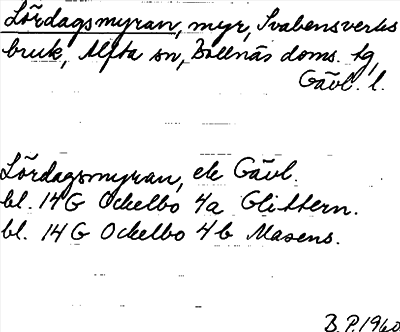 Lördagsmyran, myr, Svabensverks
bruk, Alfta sn, Bollnäs doms. tg,
Gävl. l.
Lördagsmyran, ek Gävl.
bl. 14G Ockelbo 4a Glittern.
bl. 14G Ockelbo 4b Masens.
B.P. 1960